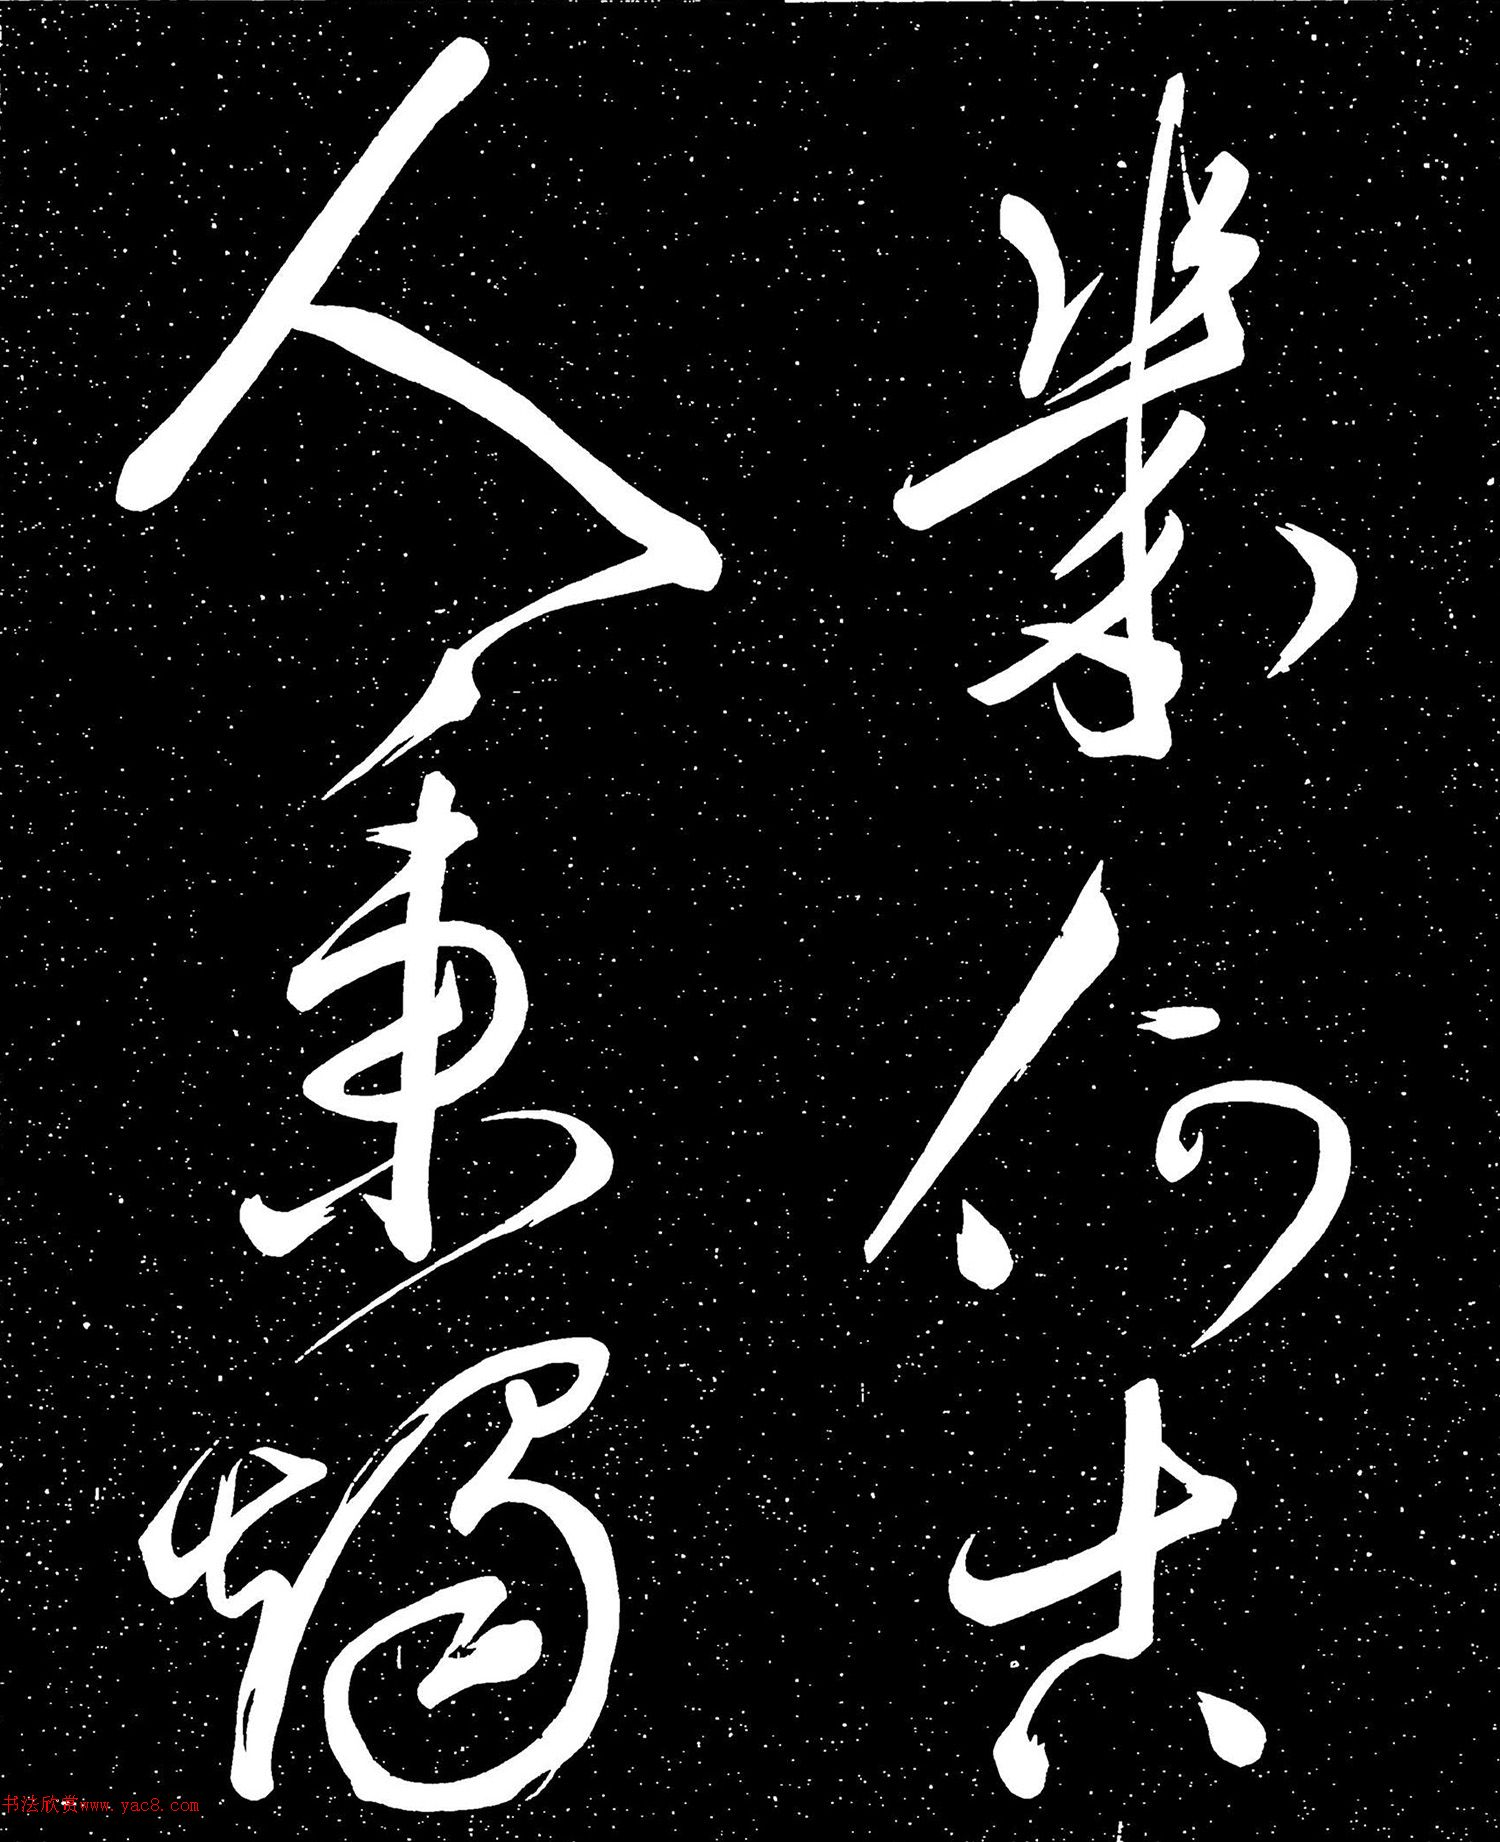 幾何古
人秉燭
书法欣赏www.yac8.com